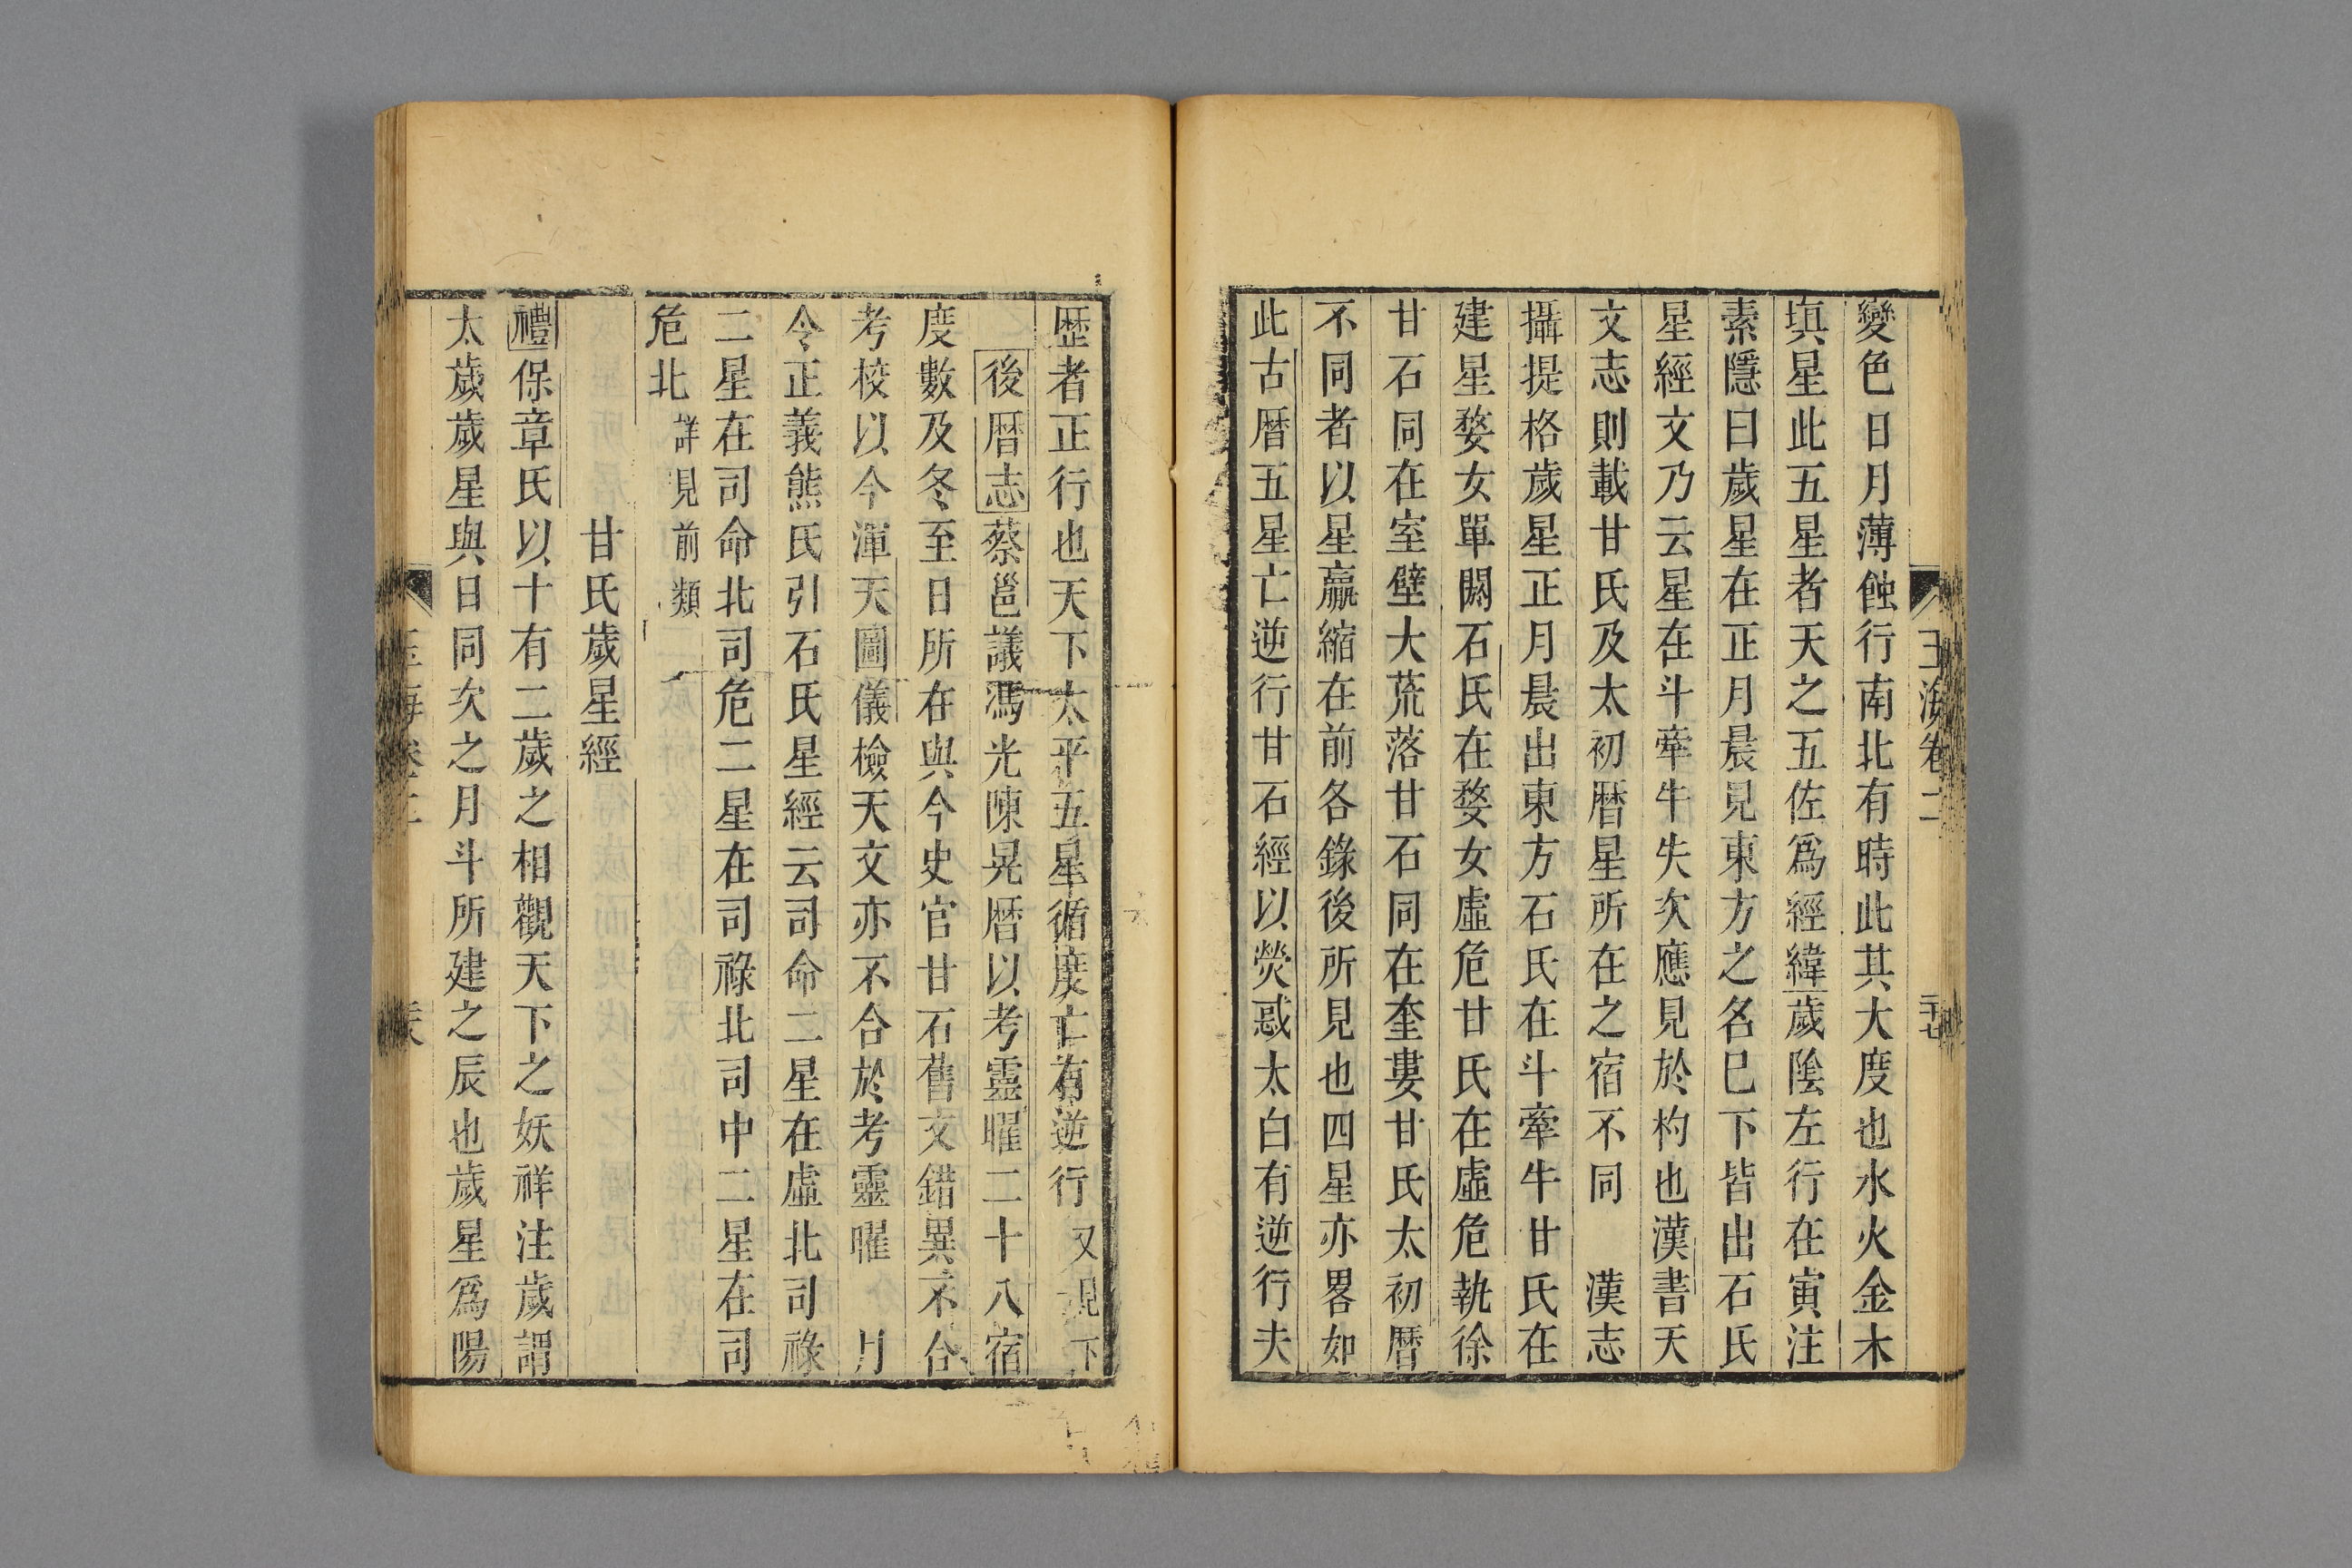 玉海卷二
變色日月薄蝕行南北有時此其大度也水火金木
塡星此五星者天之五佐爲經緯歲陰左行在寅注
索隱曰歲星在正月晨見東方之名已下皆出石氏
星經文乃云星在斗牽牛失次應見於杓也漢書天
文志則載甘氏及太初曆星所在之宿不同　漢志
攝提格歲星正月晨出東方石氏在斗牽牛甘氏在
建星婺女單閼石氏在婺女虛危甘氏在虛危執徐
甘石同在室壁大荒落甘石同在奎婁甘氏太初曆
不同者以星贏縮在前各錄後所見也四星亦畧如
此古曆五星亡逆行甘石經以熒惑太白有逆行夫
歷者正行也天下太平五星循度亡有逆行又見下
後曆志蔡邕議馮光陳晃曆以考靈曜二十八宿
度數及冬至日所在與今史官甘石舊文錯異不合
考校以今渾天圖儀檢天文亦不合於考靈曜　月
令正義熊氏引石氏星經云司命二星在虛北司祿
二星在司命北司危二星在司祿北司中二星在司
危北詳見前類
甘氏歲星經
禮保章氏以十有二歲之相觀天下之妖祥注歲謂
太歲歲星與日同次之月斗所建之辰也歲星爲陽
玉海卷二